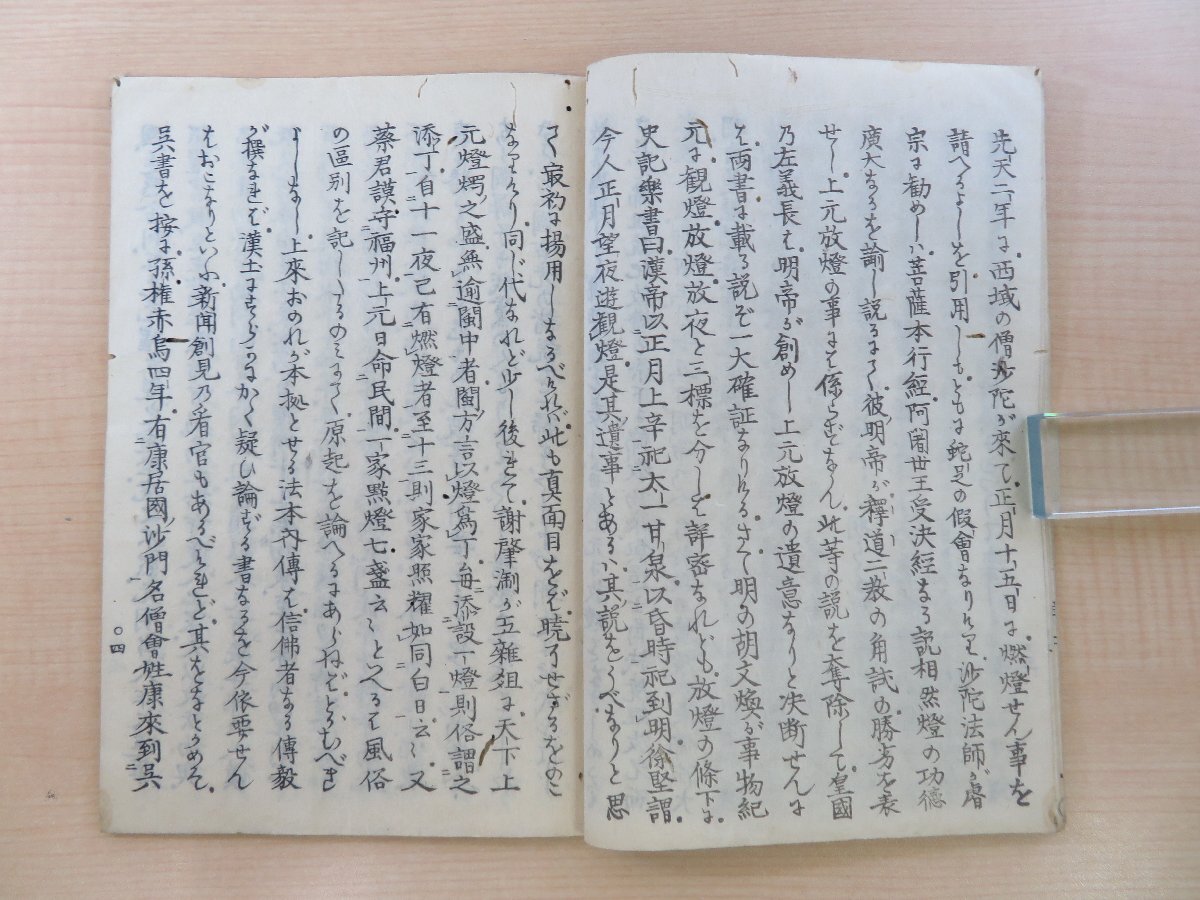 先天二年に西域の僧沙陀が來て正月十五日に燃燈せん事を
請へるよしを引用しもともは蛇足の假會なりけり沙陀法師が睿
宗に勧めしハ菩薩本行經阿闍世王受決經なる説相然燈の功德
廣大なるを諭し説るにて彼明帝が釋道二教の角試の勝方を表
せし上元放燈の事にて係らざなん此等の説を奪除して皇國
乃左義長は明帝が創めし上元放燈の遺意なりと决断せんに
は両書に載る説ぞ一大確証なりけるさて明の胡文煥が事物紀
元に観燈放燈放夜と三標を分しは詳密なれども放燈の條下に
史記樂書曰漢帝以正月上辛祀太一甘泉以昏時祀到明徐堅謂
今人正月望夜遊観燈是其遺事とあるハ其説をうべなりと思
て最初に揚用しなるべければ此も真面目をば暁了せざるをのこ
なりけり同じ代なれど少し後れて謝肇淛が五雜俎に天下上
元燈燭之盛無逾閩中者閩方言以燈爲丁毎添設一燈則俗謂之
添丁自十一夜已有燃燈者至十三則家家照耀如同白日云〻又
蔡君謨守福州上元日命民間一家點燈七盞云〻とへるも風俗
の區別を記したるのミにて原起を論へるにあらねばとるむべき
よしなし上來おのれが本拠とせる法本内傳は信佛者なる傳毅
が撰なれば漢土にすらはやかく疑ひ論ずる書なるを今依要せん
はおこなりといふ新聞創見乃看官もあるべけれど其をなとめそ
呉書を按に孫權赤烏四年有康居國沙門名僧會姓康來到呉
〇四